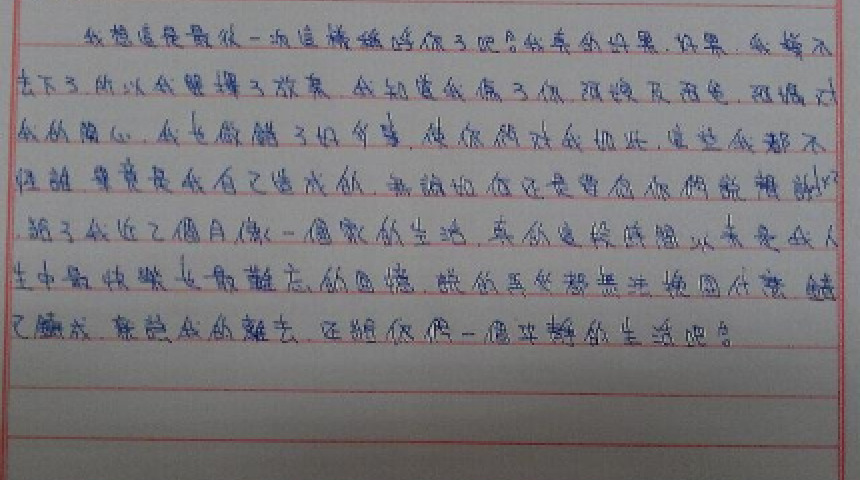 我想這是最後一次這樣稱呼你了吧!我真的好累.好累.我撐不
去下了.所以我選擇了放棄.我知道我傷了你.及爸.媽對
我的關心.我也做錯了好多事.使你們對我如此.這些我都不
怪誰畢竟是我自己造成的.無論如何还是要跟你們說謝謝
.給了我近2個月像一個家的生活.真的這段時間以來是我人
生中最快樂也最難忘的回憶.說的再多都無法挽回什麼.錯
已鑄成.就讓我的離去.还給你們一個平靜的生活吧!